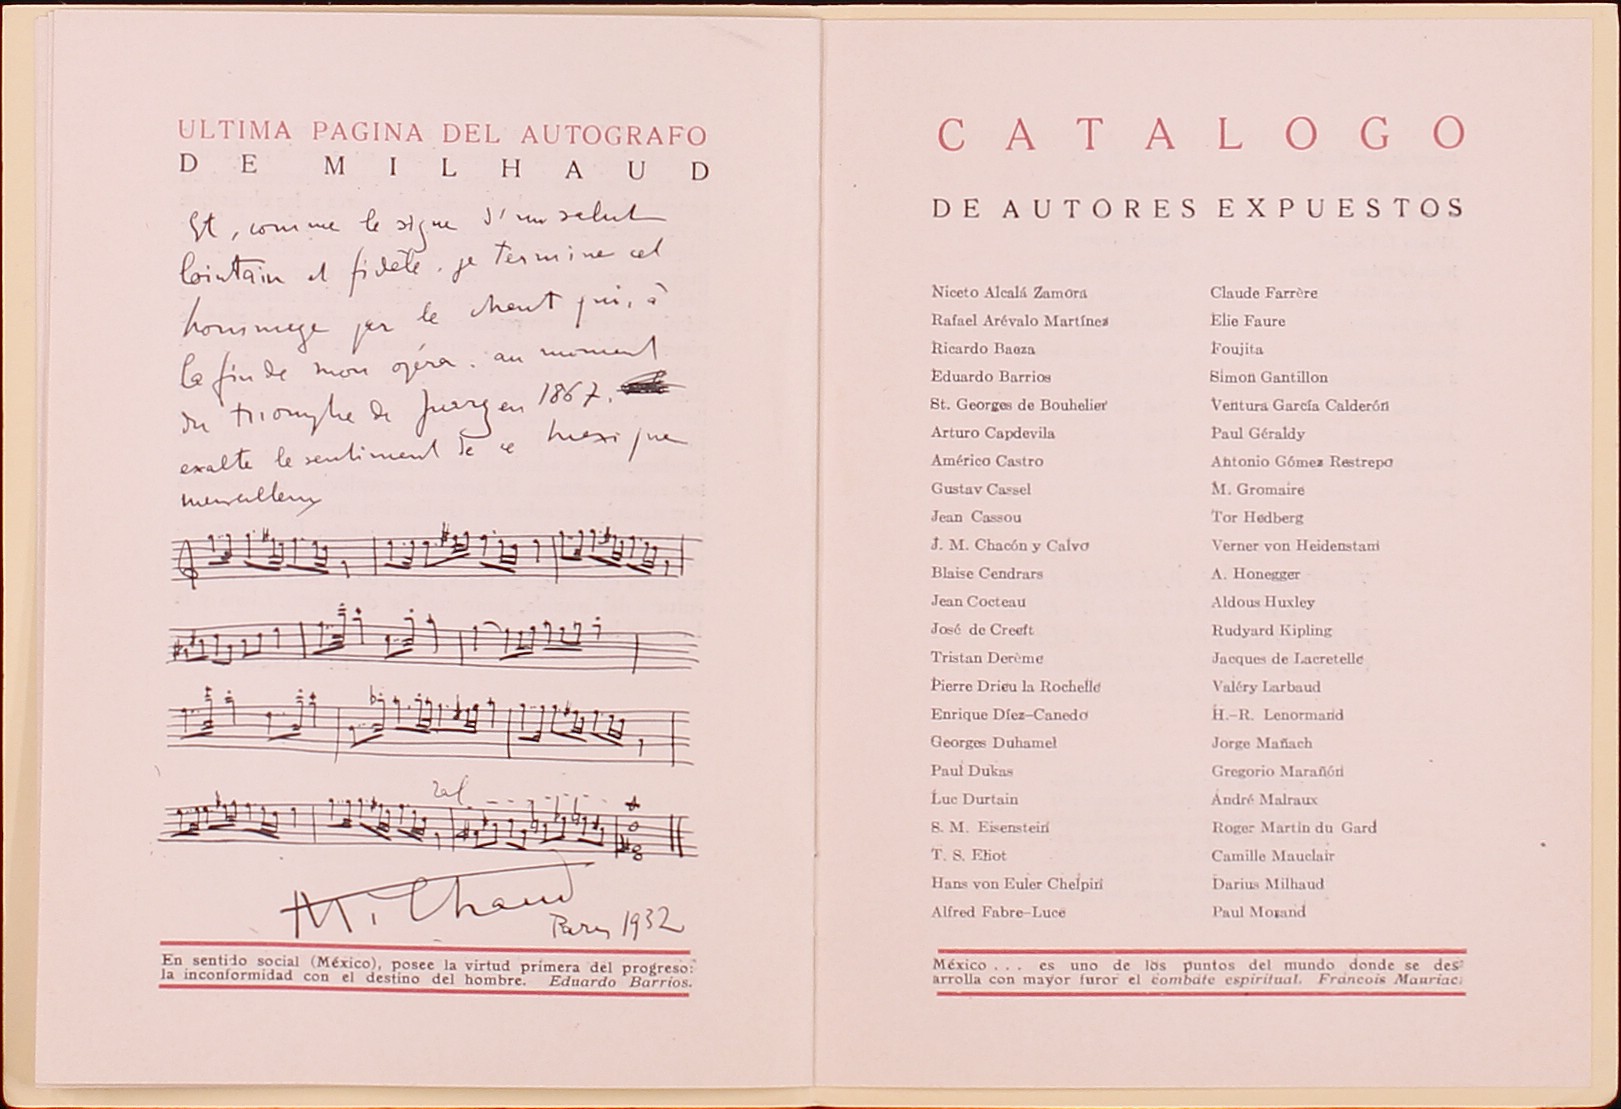 ULTIMA PAGINA DEL AUTOGRAFO
DE MILHAUD
Et, comme le signe d'un salut
lointain et fidèle, je termine cet
hommage par le chant qui, à
la fin de mon opéra, au moment
du triomphe de Juarez en 1867,
exalte le sentiment de ce Mexique
merveilleux
Milhaud
Paris 1932
En sentido social (México), posee la virtud primera del progreso:
la inconformidad con el destino del hombre. Eduardo Barrios.
CATALOGO
DE AUTORES EXPUESTOS
Niceto Alcalá Zamora
Rafael Arévalo Martínez
Ricardo Baeza
Eduardo Barrios
St. Georges de Bouhelier
Arturo Capdevila
Américo Castro
Gustav Cassel
Jean Cassou
J. M. Chacón y Calvo
Blaise Cendrars
Jean Cocteau
José de Creeft
Tristan Derème
Pierre Drieu la Rochelle
Enrique Díez-Canedo
Georges Duhamel
Paul Dukas
Luc Durtain
S. M. Eisenstein
T. S. Eliot
Hans von Euler Chelpin
Alfred Fabre-Luce
Claude Farrère
Elie Faure
Foujita
Simon Gantillon
Ventura García Calderón
Paul Géraldy
Antonio Gómez Restrepo
M. Gromaire
Tor Hedberg
Verner von Heidenstam
A. Honegger
Aldous Huxley
Rudyard Kipling
Jacques de Lacretelle
Valéry Larbaud
H.-R. Lenormand
Jorge Mañach
Gregorio Marañón
André Malraux
Roger Martin du Gard
Camille Mauclair
Darius Milhaud
Paul Morand
México . . . es uno de los puntos del mundo donde se des-
arrolla con mayor furor el combate espiritual. Francois Mauriac.